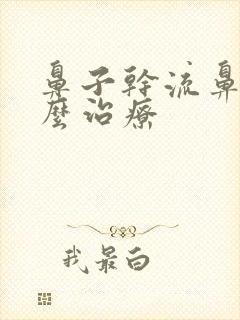 鼻子幹流鼻
麼治療
我最白